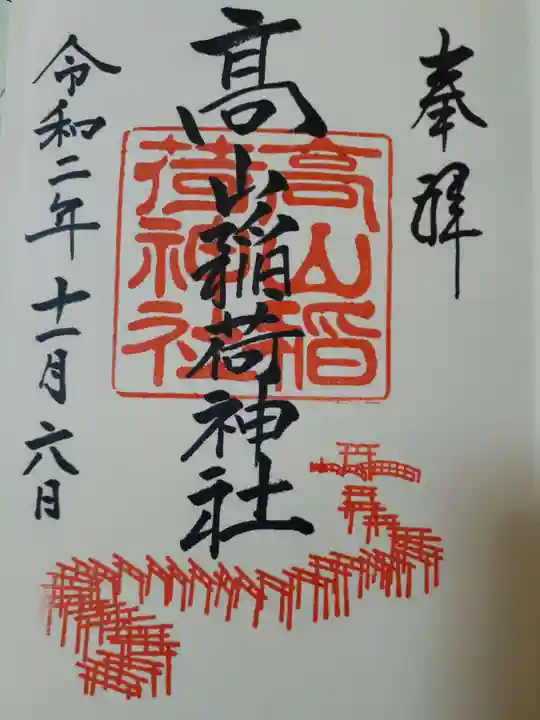 奉拝
髙山稲荷神社
高山稲
荷神社
令和二年十一月六日